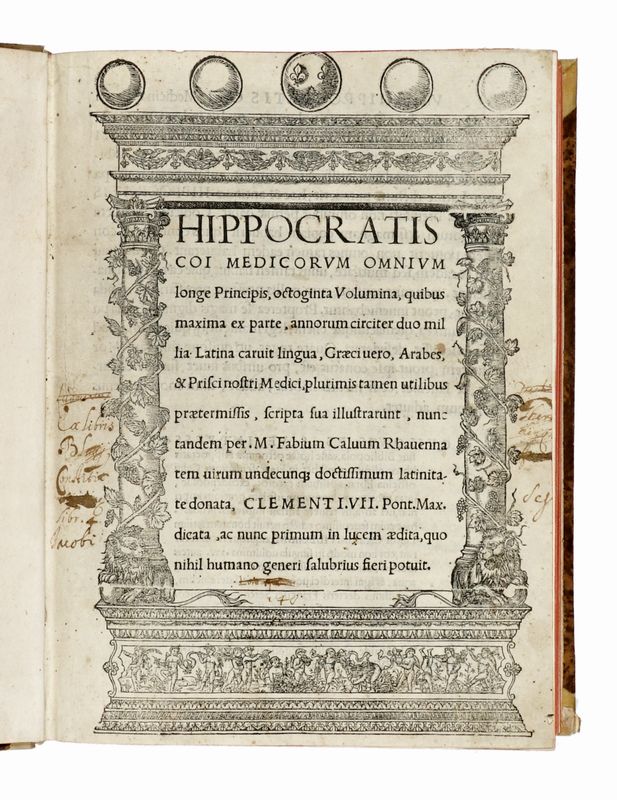 HIPPOCRATIS
COI MEDICORVM OMNIVM
longe Principis, octoginta Volumina, quibus
maxima ex parte, annorum circiter duo mil
lia Latina caruit lingua, Græci uero, Arabes,
& Prisci nostri Medici, plurimis tamen utilibus
prætermissis, scripta sua illustrarunt, nunc
tandem per. M. Fabium Caluum Rhauenna
tem uirum undecunq; doctissimum latinita-
te donata, CLEMENTI.VII. Pont. Max.
dicata, ac nunc primum in lucem ædita, quo
nihil humano generi salubrius fieri potuit.
Ex libris
libr.
Jacobi